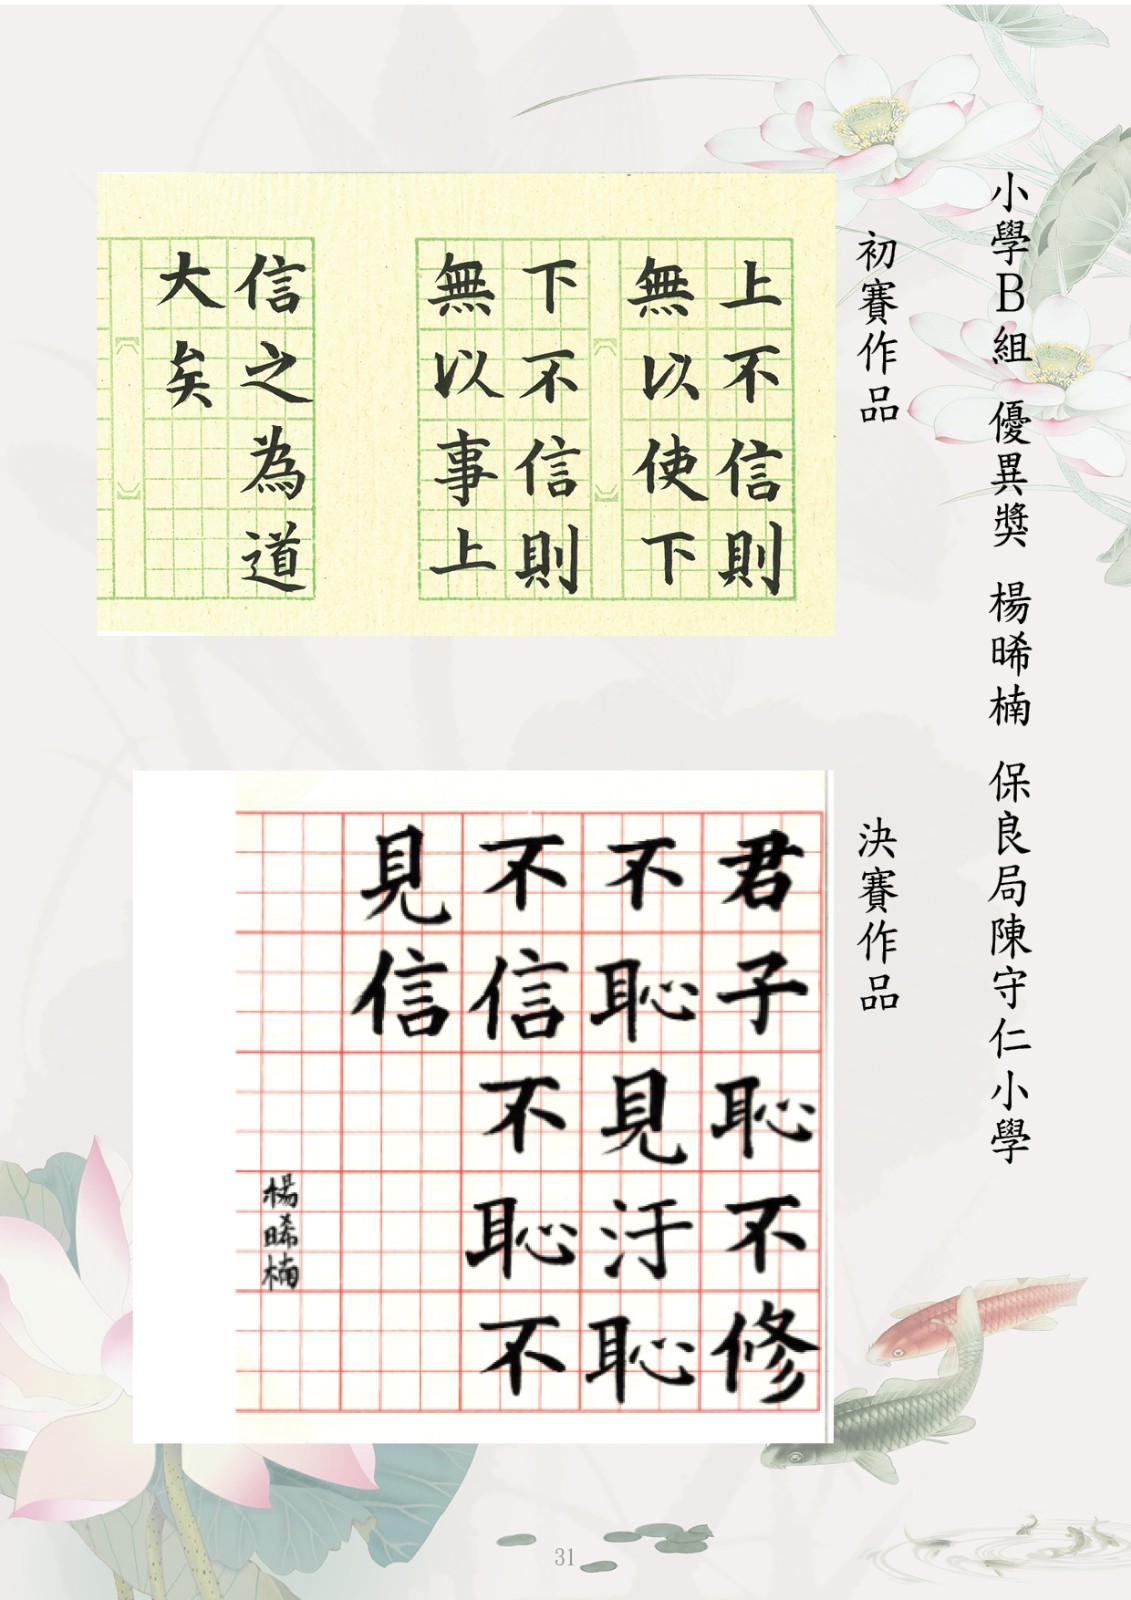 小學B組 優異獎 楊晞楠 保良局陳守仁小學
初賽作品
上不信則
無以使下
下不信則
無以事上
信之為道
大矣
決賽作品
君子恥不修
不恥見汙恥
不信不恥不
見信
楊晞楠
31